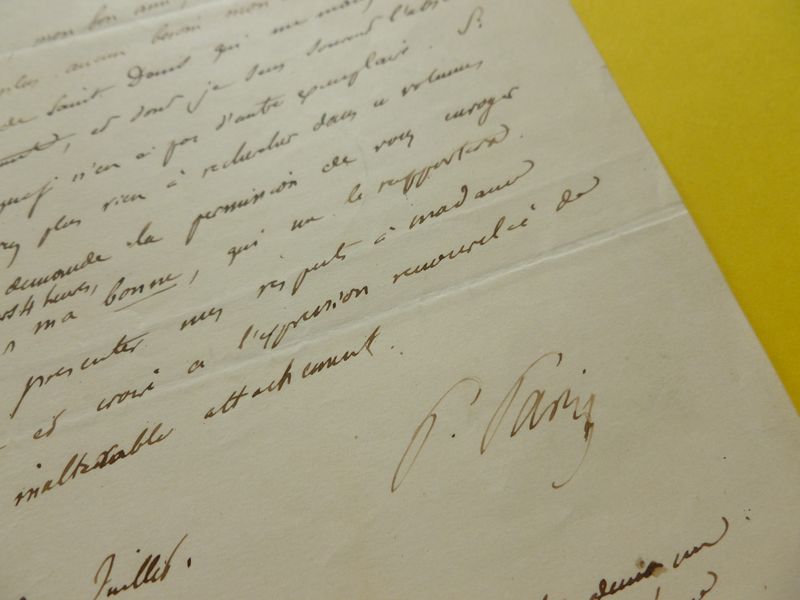 mon bon ami,
plus aucun besoin mon
de Saint Denis qui me manq
, et dont je sens souvent l'abse
n'en a pas d'autre exemplaire. Si
plus rien à rechercher dans ce volume,
demande la permission de vous envoyer
4 heures,
ma bonne, qui me le rapportera.
présenter mes respects à madame
et croire à l'expression renouvelée de
inaltérable attachement.
P. Paris
Juillet.